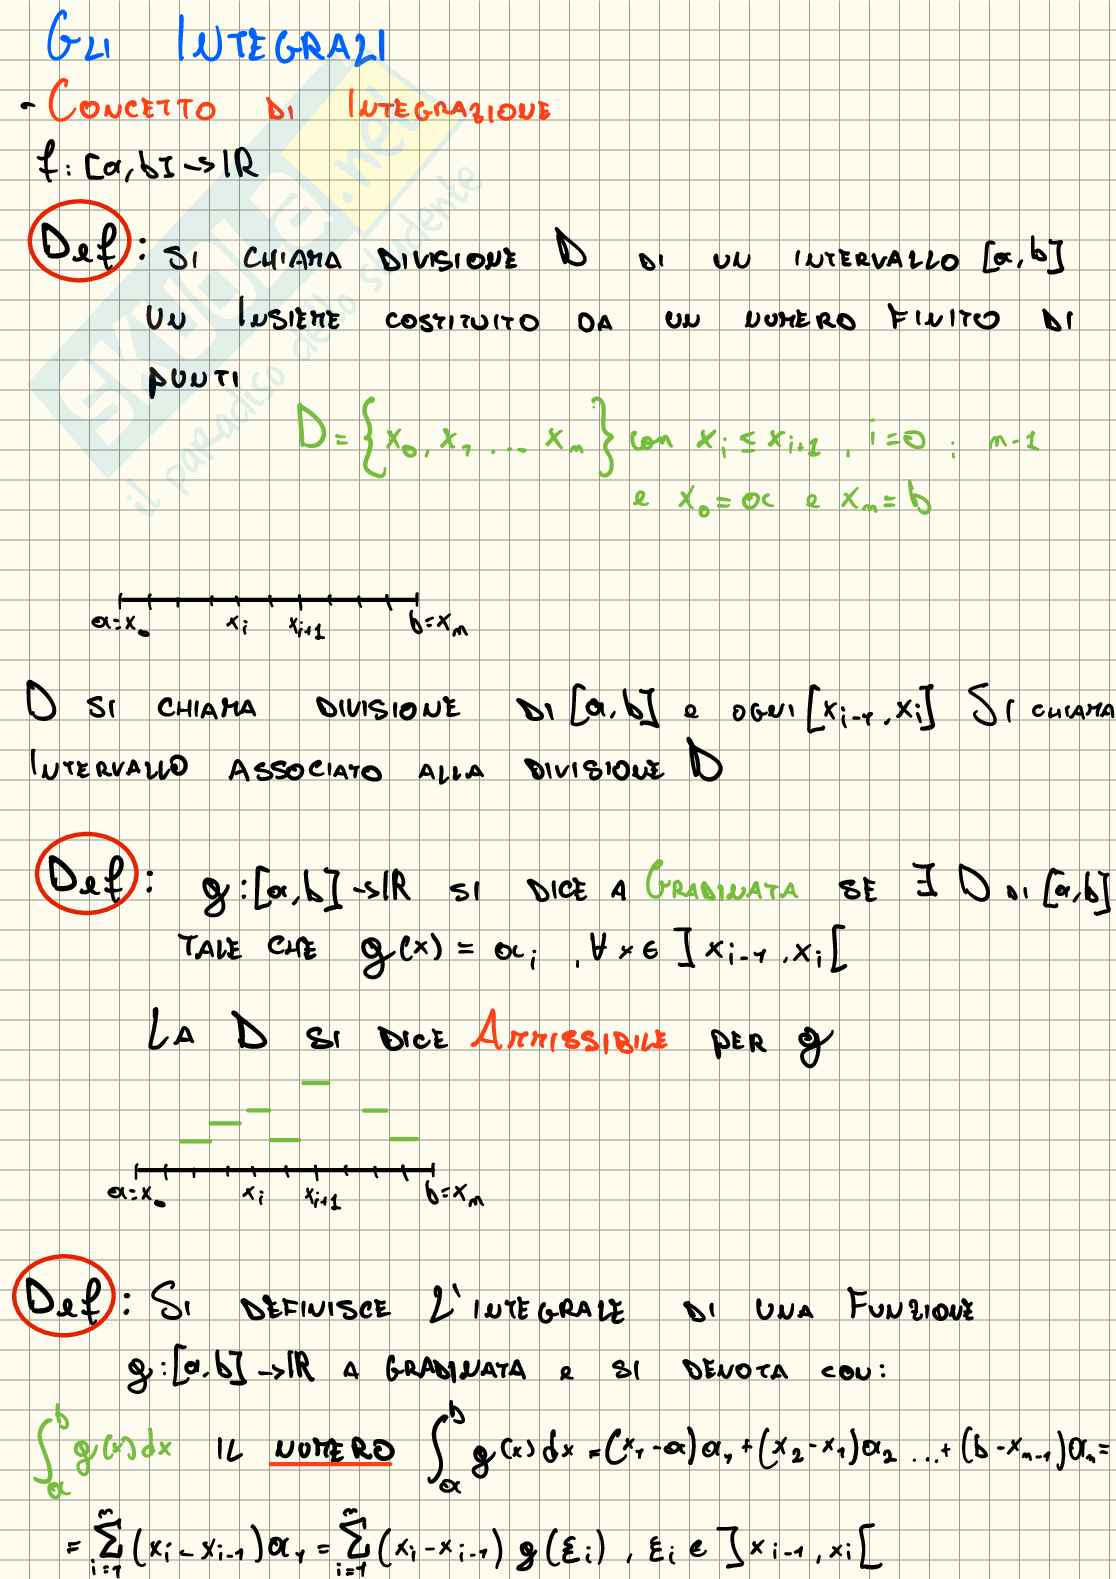 GLI INTEGRALI
- CONCETTO DI INTEGRAZIONE
f: [a, b] -> ℝ
Def: SI CHIAMA DIVISIONE D DI UN INTERVALLO [a, b]
UN INSIEME COSTITUITO DA UN NUMERO FINITO DI
PUNTI
D = {x₀, x₁, ... xₙ} con xᵢ ≤ xᵢ₊₁, i=0; n-1
e x₀ = a e xₙ = b
a=x₀ xᵢ xᵢ₊₁ b=xₙ
D SI CHIAMA DIVISIONE DI [a, b] e OGNI [xᵢ₋₁, xᵢ] SI CHIAMA
INTERVALLO ASSOCIATO ALLA DIVISIONE D
Def: g: [a, b] -> ℝ SI DICE A GRADINATA SE ∃ D DI [a, b]
TALE CHE g(x) = aᵢ, ∀ x ∈ ]xᵢ₋₁, xᵢ[
LA D SI DICE AMMISSIBILE PER g
a=x₀ xᵢ xᵢ₊₁ b=xₙ
Def: SI DEFINISCE L'INTEGRALE DI UNA FUNZIONE
g: [a, b] -> ℝ A GRADINATA e SI DENOTA CON:
∫ₐᵇ g(x) dx IL NUMERO ∫ₐᵇ g(x) dx = (x₁ - a) a₁ + (x₂ - x₁) a₂ ... + (b - xₙ₋₁) aₙ =
= ∑ᵢ₌₁ⁿ (xᵢ - xᵢ₋₁) a₁ = ∑ᵢ₌₁ⁿ (xᵢ - xᵢ₋₁) g(ξᵢ), ξᵢ e ]xᵢ₋₁, xᵢ[
SKUOLA.net
il paradiso dello studente